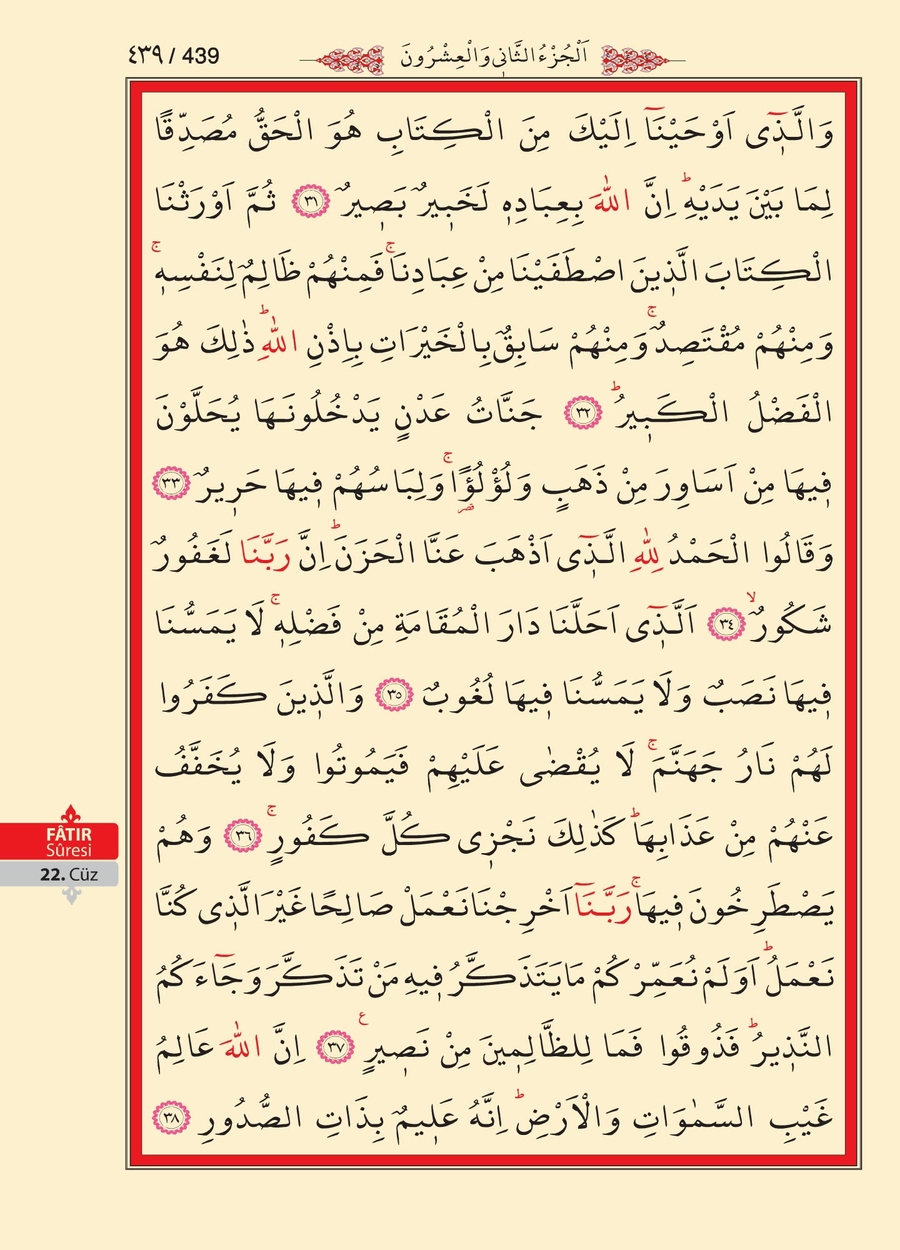 ٤٣٩ / 439
اَلْجُزْءُ الثَّانِي وَالْعِشْرُونَ
وَالَّذ۪ٓى اَوْحَيْنَٓا اِلَيْكَ مِنَ الْكِتَابِ هُوَ الْحَقُّ مُصَدِّقًا
لِمَا بَيْنَ يَدَيْهِۜ اِنَّ اللّٰهَ بِعِبَادِه۪ لَخَب۪يرٌ بَص۪يرٌ ﴿٣١﴾ ثُمَّ اَوْرَثْنَا
الْكِتَابَ الَّذ۪ينَ اصْطَفَيْنَا مِنْ عِبَادِنَاۚ فَمِنْهُمْ ظَالِمٌ لِنَفْسِه۪ۚ
وَمِنْهُمْ مُقْتَصِدٌۚ وَمِنْهُمْ سَابِقٌ بِالْخَيْرَاتِ بِاِذْنِ اللّٰهِۜ ذٰلِكَ هُوَ
الْفَضْلُ الْكَب۪يرُۜ ﴿٣٢﴾ جَنَّاتُ عَدْنٍ يَدْخُلُونَهَا يُحَلَّوْنَ
ف۪يهَا مِنْ اَسَاوِرَ مِنْ ذَهَبٍ وَلُؤْلُؤً۬اۚ وَلِبَاسُهُمْ ف۪يهَا حَر۪يرٌ ﴿٣٣﴾
وَقَالُوا الْحَمْدُ لِلّٰهِ الَّذ۪ٓى اَذْهَبَ عَنَّا الْحَزَنَۜ اِنَّ رَبَّنَا لَغَفُورٌ
شَكُورٌۙ ﴿٣٤﴾ اَلَّذ۪ٓى اَحَلَّنَا دَارَ الْمُقَامَةِ مِنْ فَضْلِه۪ۚ لَا يَمَسُّنَا
ف۪يهَا نَصَبٌ وَلَا يَمَسُّنَا ف۪يهَا لُغُوبٌ ﴿٣٥﴾ وَالَّذ۪ينَ كَفَرُوا
لَهُمْ نَارُ جَهَنَّمَۚ لَا يُقْضٰى عَلَيْهِمْ فَيَمُوتُوا وَلَا يُخَفَّفُ
عَنْهُمْ مِنْ عَذَابِهَاۜ كَذٰلِكَ نَجْز۪ى كُلَّ كَفُورٍۚ ﴿٣٦﴾ وَهُمْ
يَصْطَرِخُونَ ف۪يهَاۚ رَبَّنَٓا اَخْرِجْنَا نَعْمَلْ صَالِحًا غَيْرَ الَّذ۪ى كُنَّا
نَعْمَلُۜ اَوَلَمْ نُعَمِّرْكُمْ مَا يَتَذَكَّرُ ف۪يهِ مَنْ تَذَكَّرَ وَجَٓاءَكُمُ
النَّذ۪يرُۜ فَذُوقُوا فَمَا لِلظَّالِم۪ينَ مِنْ نَص۪يرٍ ﴿٣٧﴾ ع اِنَّ اللّٰهَ عَالِمُ
غَيْبِ السَّمٰوَاتِ وَالْاَرْضِۜ اِنَّهُ عَل۪يمٌ بِذَاتِ الصُّدُورِ ﴿٣٨﴾
FÂTIR
Sûresi
22. Cüz